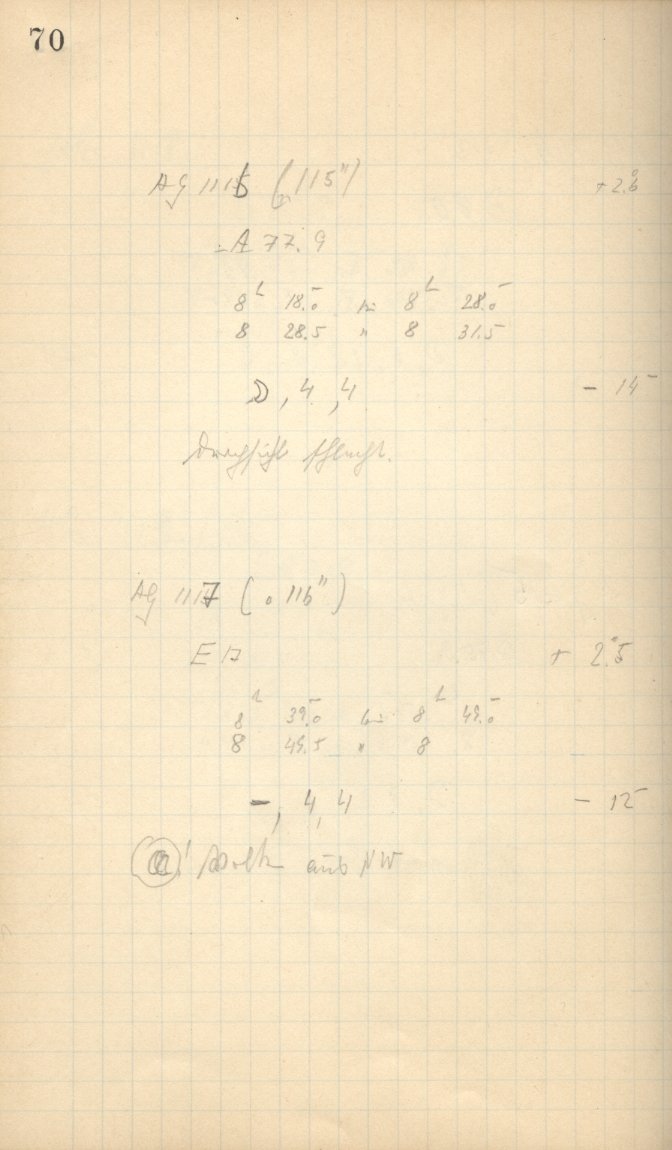 70
AG 1116 („115") +2.°6
A 77.9
8ʰ 18.ᵐ0 bis 8ʰ 28.ᵐ0
8 28.5 " 8 31.5
D, 4, 4 - 14
Durchsicht schlecht.
AG 1117 („116")
E 17 + 2.°5
8ʰ 39.ᵐ0 bis 8ʰ 49.ᵐ0
8 49.5 " 8
-, 4, 4 - 12
! Wolken aus NW